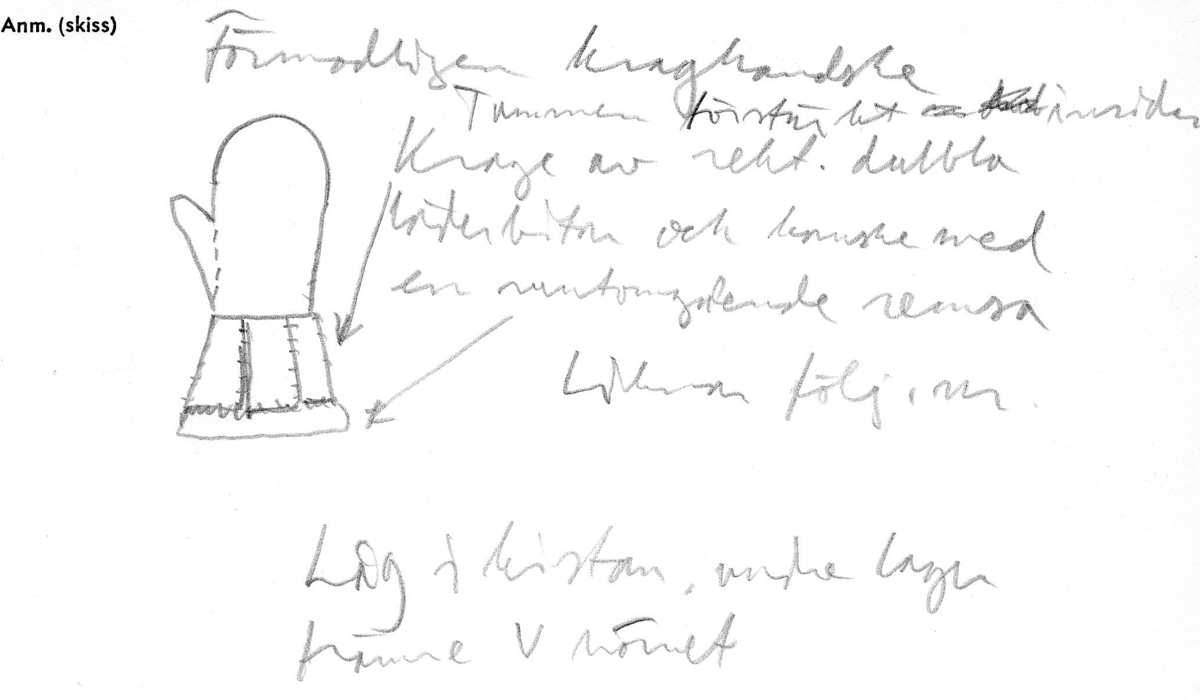 Anm. (skiss)
Förmodligen kraghandske
Tummen förstärkt insidan
Krage av rekt. dubbla
läderbitar och kanske med
en runtomgående remsa
Liknar följ. nr.
Låg i kistan, undre lagen
främre V hörnet